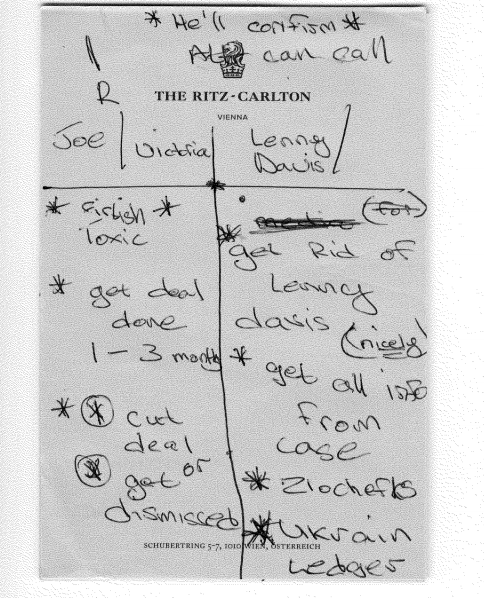 * He'll confirm *
can call
R
THE RITZ-CARLTON
VIENNA
Joe / Victoria
Lenny Davis /
* Firtish *
Toxic
* get deal
done
1 - 3 month
* * cut
deal
or
* get
dismissed
* get Rid of
Lenny
davis
(nicely)
* get all info
from
case
* Zlochefks
* Ukrain
Ledger
SCHUBERTRING 5-7, 1010 WIEN, ÖSTERREICH